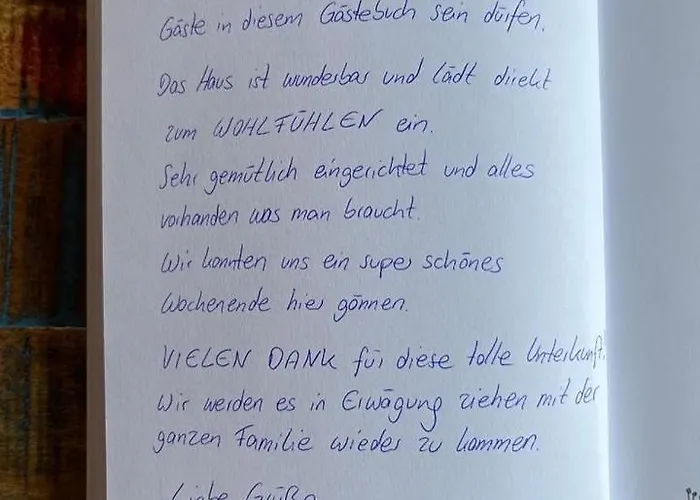 Gäste in diesem Gästebuch sein dürfen.
Das Haus ist wunderbar und lädt direkt
zum WOHLFÜHLEN ein.
Sehr gemütlich eingerichtet und alles
vorhanden was man braucht.
Wir konnten uns ein super schönes
Wochenende hier gönnen.
VIELEN DANK für diese tolle Unterkunft!
Wir werden es in Erwägung ziehen mit der
ganzen Familie wieder zu kommen.
Liebe Grüße